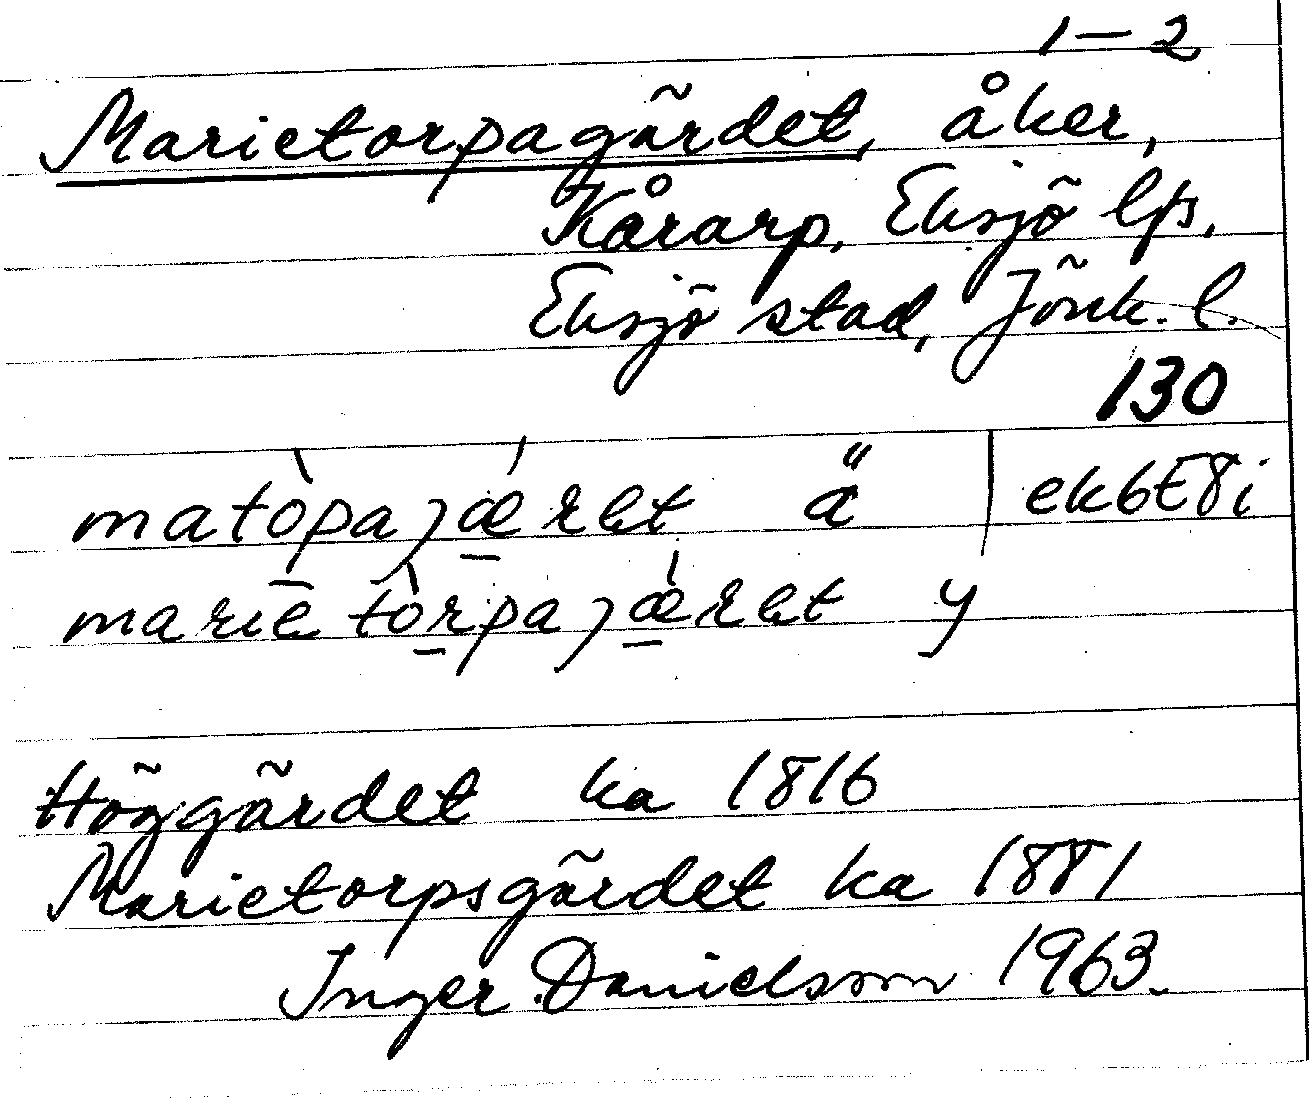 1–2
Marietorpagärdet, åker,
Kårarp, Eksjö lfs,
Eksjö stad, Jönk. l.
130
matòpajǽret ä | ek6E8i
marietòrpajǽret y
Höggärdet ka 1816
Marietorpsgärdet ka 1881
Inger Danielsson 1963.